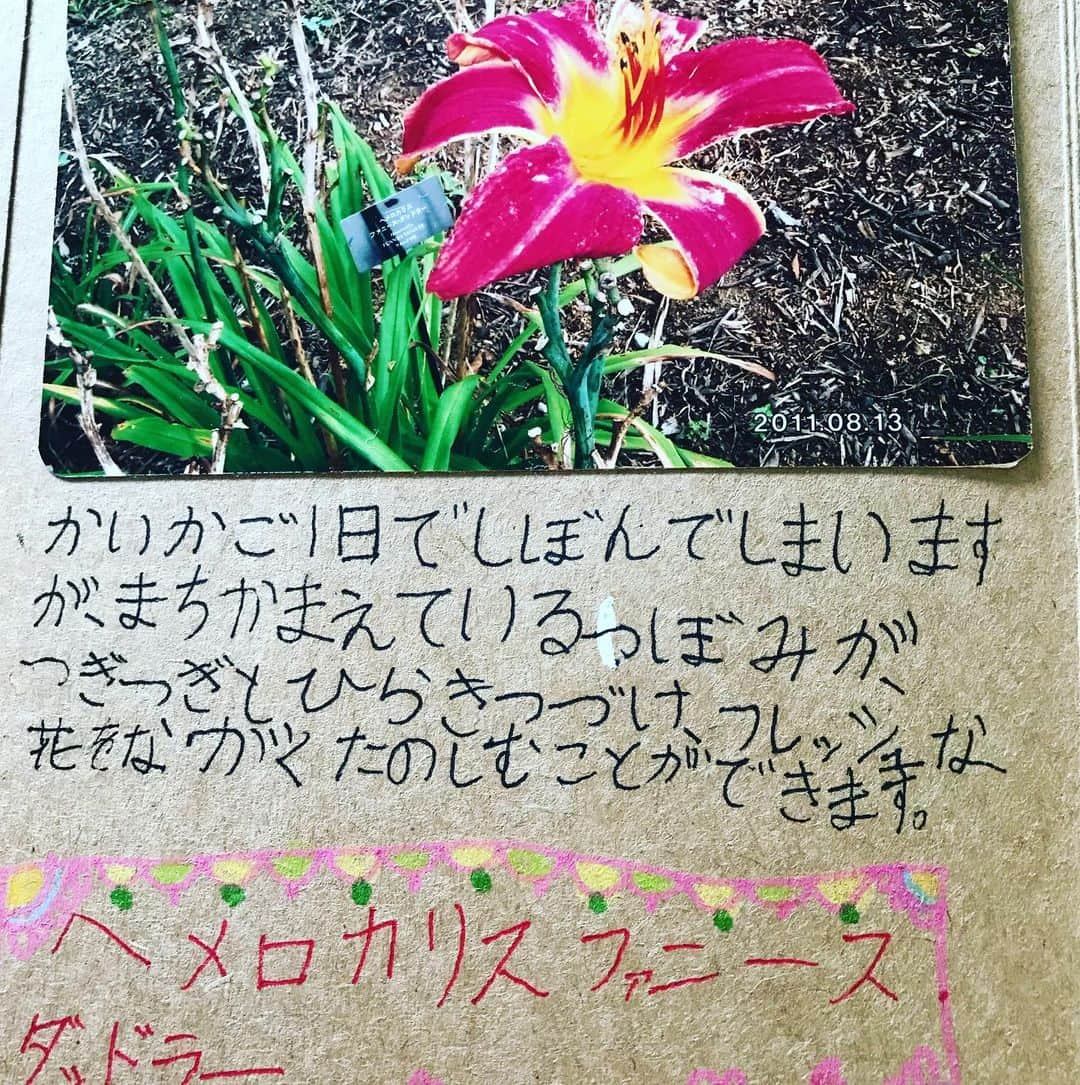 2011.08.13
かいかご1日でしぼんでしまいます
が、まちかまえているつぼみが、
つぎつぎとひらきつづけ、フレッシュな
花をながくたのしむことができます。
ヘメロカリスファニース
ダッドラー